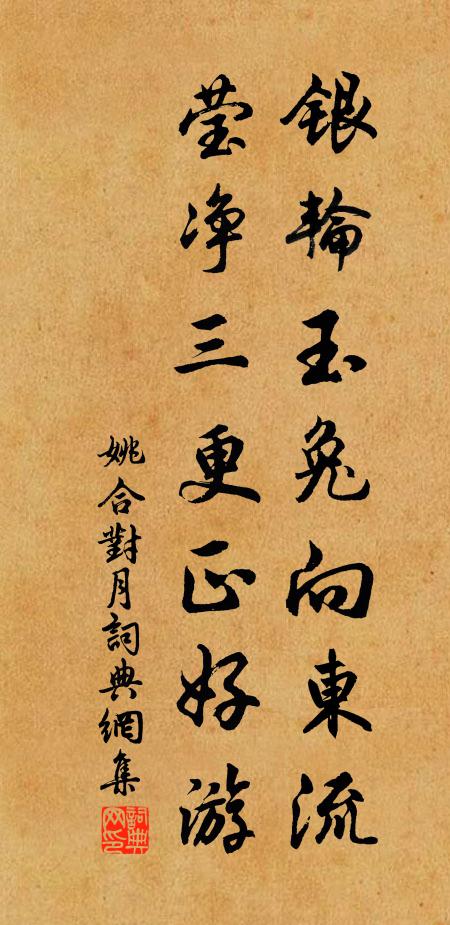 銀輪玉兔向東流
莹净三更正好游
姚合對月詞典網集
詞典网印